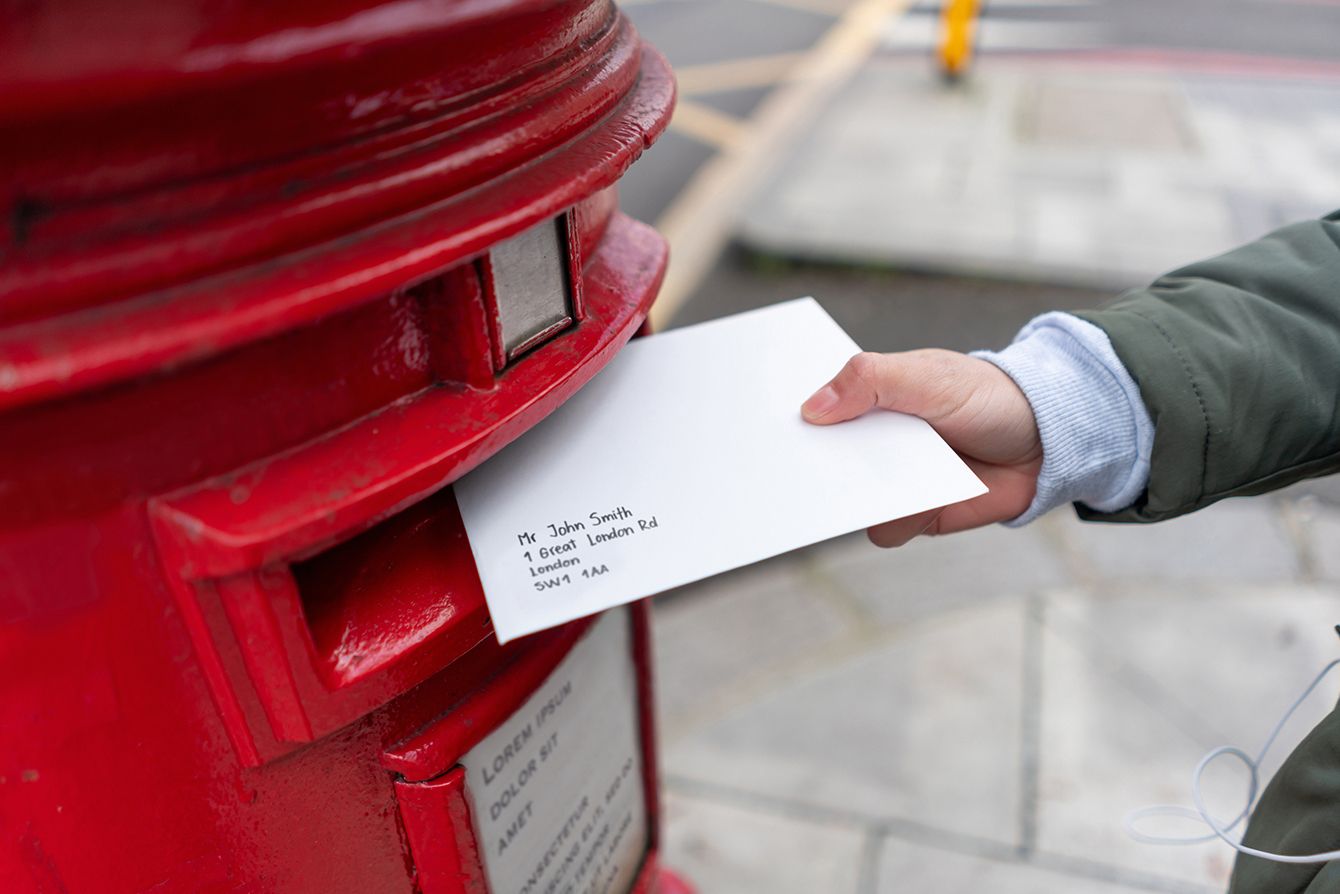 Mr John Smith
1 Great London Rd
London
SW1 1AA
LOREM IPSUM
DOLOR SIT
AMET
ONSECTETUR
ISCING ELIT, SED DO
TEMPOR
LABORE